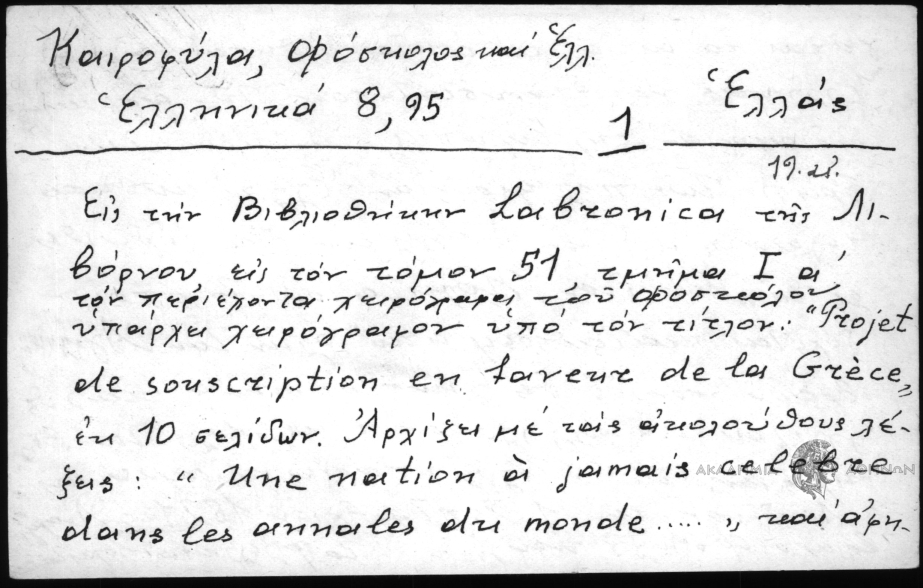 Καιροφύλα, Φόσκολος καί Ἑλλ.
Ἑλληνικά 8,95
1
Ἑλλάς
19.28.
Εἰς τήν Βιβλιοθήκην Labronica τῆς Λι-
βόρνου εἰς τόν τόμον 51 τμῆμα I α΄
τόν περιέχοντα χειρόγραφα τοῦ Φοσκόλου
ὑπάρχει χειρόγραφον ὑπό τόν τίτλον: "Projet
de souscription en faveur de la Grèce„
ἐκ 10 σελίδων. Ἀρχίζει μέ τάς ἀκολούθους λέ-
ξεις: “ Une nation à jamais celebre
ΑΚΑΔΗΜΙΑ ΑΘΗΝΩΝ
dans les annales du monde ..... „ καί ἀφη-